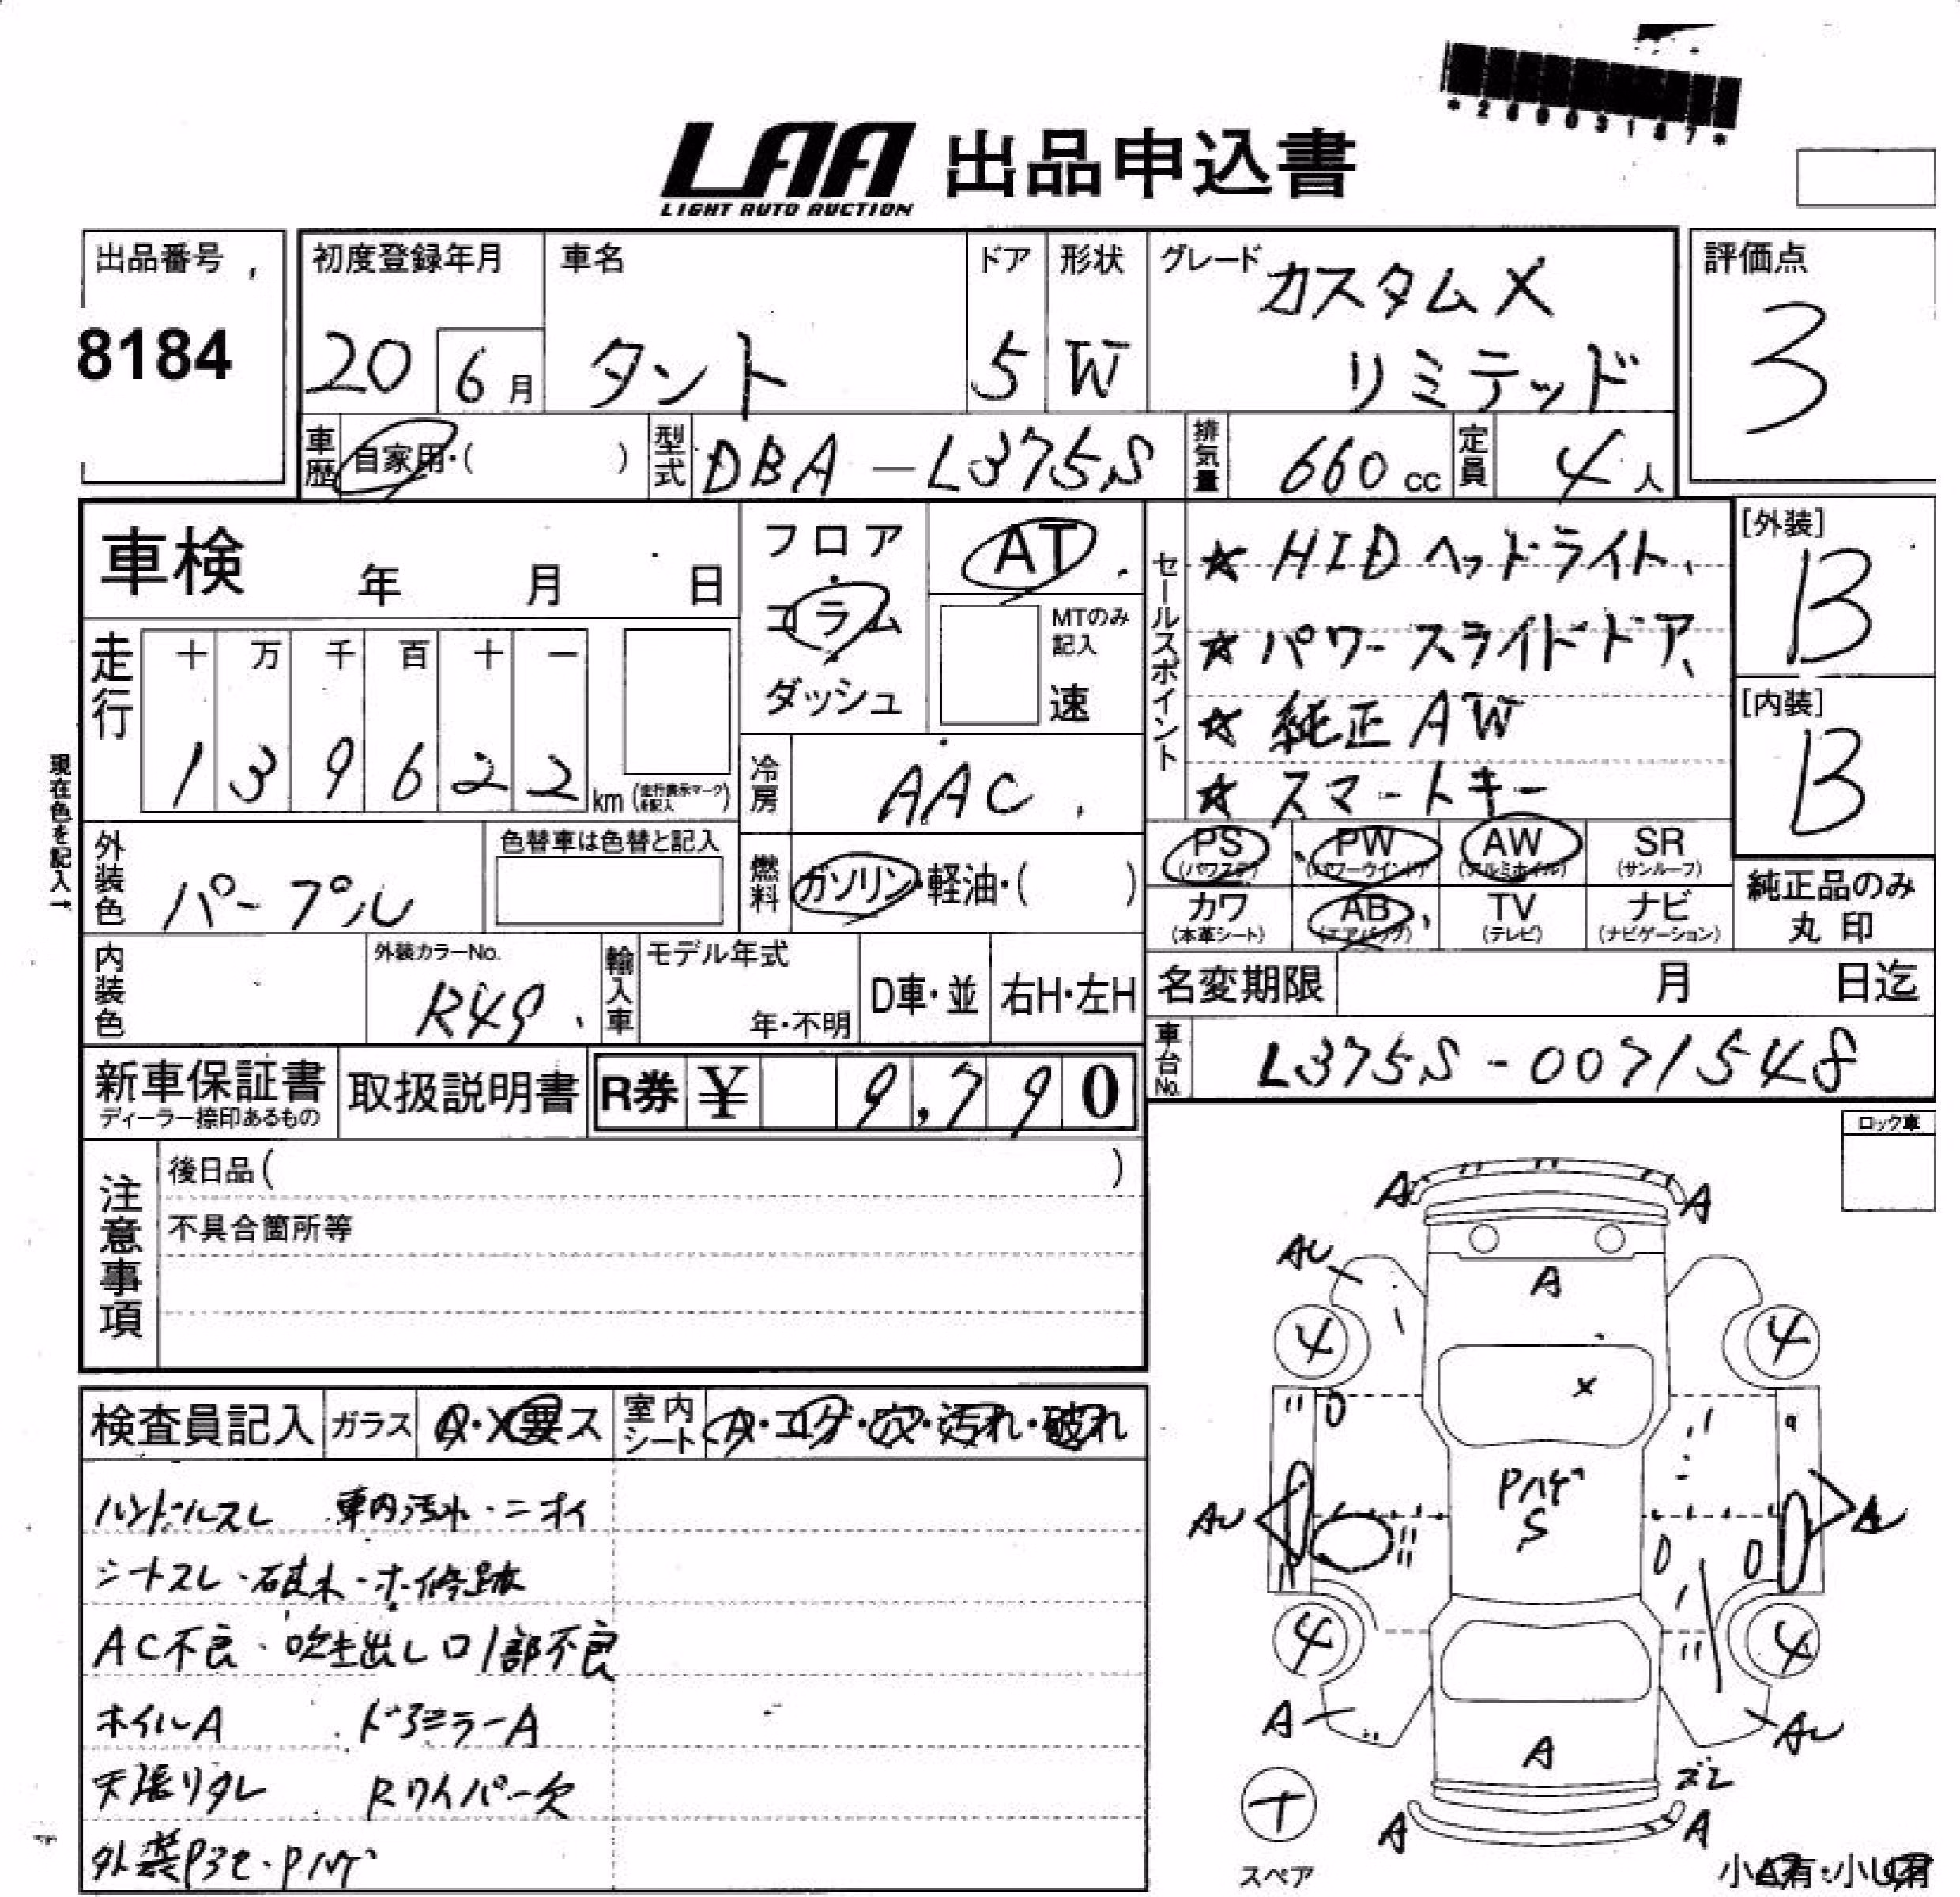 *26003187*
LAA 出品申込書
LIGHT AUTO AUCTION
出品番号
8184
初度登録年月
20 6月
車名
タント
ドア
5
形状
W
グレード
カスタムX
リミテッド
評価点
3
車歴 自家用・( )
型式 DBA-L375S
排気量 660cc
定員 4人
車検 年 月 日
フロア・コラム・ダッシュ
AT
MTのみ記入
速
走行
十 万 千 百 十 一
1 3 9 6 2 2 km
(走行表示マークを記入)
現在色を記入→
冷房 AAC
燃料 ガソリン・軽油・( )
外装色 パープル
色替車は色替と記入
内装色
外装カラーNo.
R49
輸入車
モデル年式
年・不明
D車・並
右H・左H
セールスポイント
☆ HIDヘッドライト、
☆ パワースライドドア、
☆ 純正AW
☆ スマートキー
[外装]
B
[内装]
B
PS (パワステ) PW (パワーウインド) AW (アルミホイル) SR (サンルーフ)
カワ (本革シート) AB (エアバッグ) TV (テレビ) ナビ (ナビゲーション)
純正品のみ
丸印
名変期限 月 日迄
車台No. L375S-0071548
新車保証書
ディーラー捺印あるもの
取扱説明書
R券 ¥ 9,790
注意事項
後日品( )
不具合箇所等
ロック車
検査員記入 ガラス A・X要ス 室内シート A・コゲ・穴・汚れ・破れ
ハンドルスレ 車内汚れ・ニオイ
シートスレ・破れ・ホ修跡
AC不良・吹き出し口1部不良
ホイルA ドアミラーA
天張りタレ Rワイパー欠
外装Pヨセ・Pハゲ
A A
AU
A
4 4
X
Pハゲ
S
AU AU
4 4
A AU
A
ズレ
A A
十
スペア
小A有・小U有